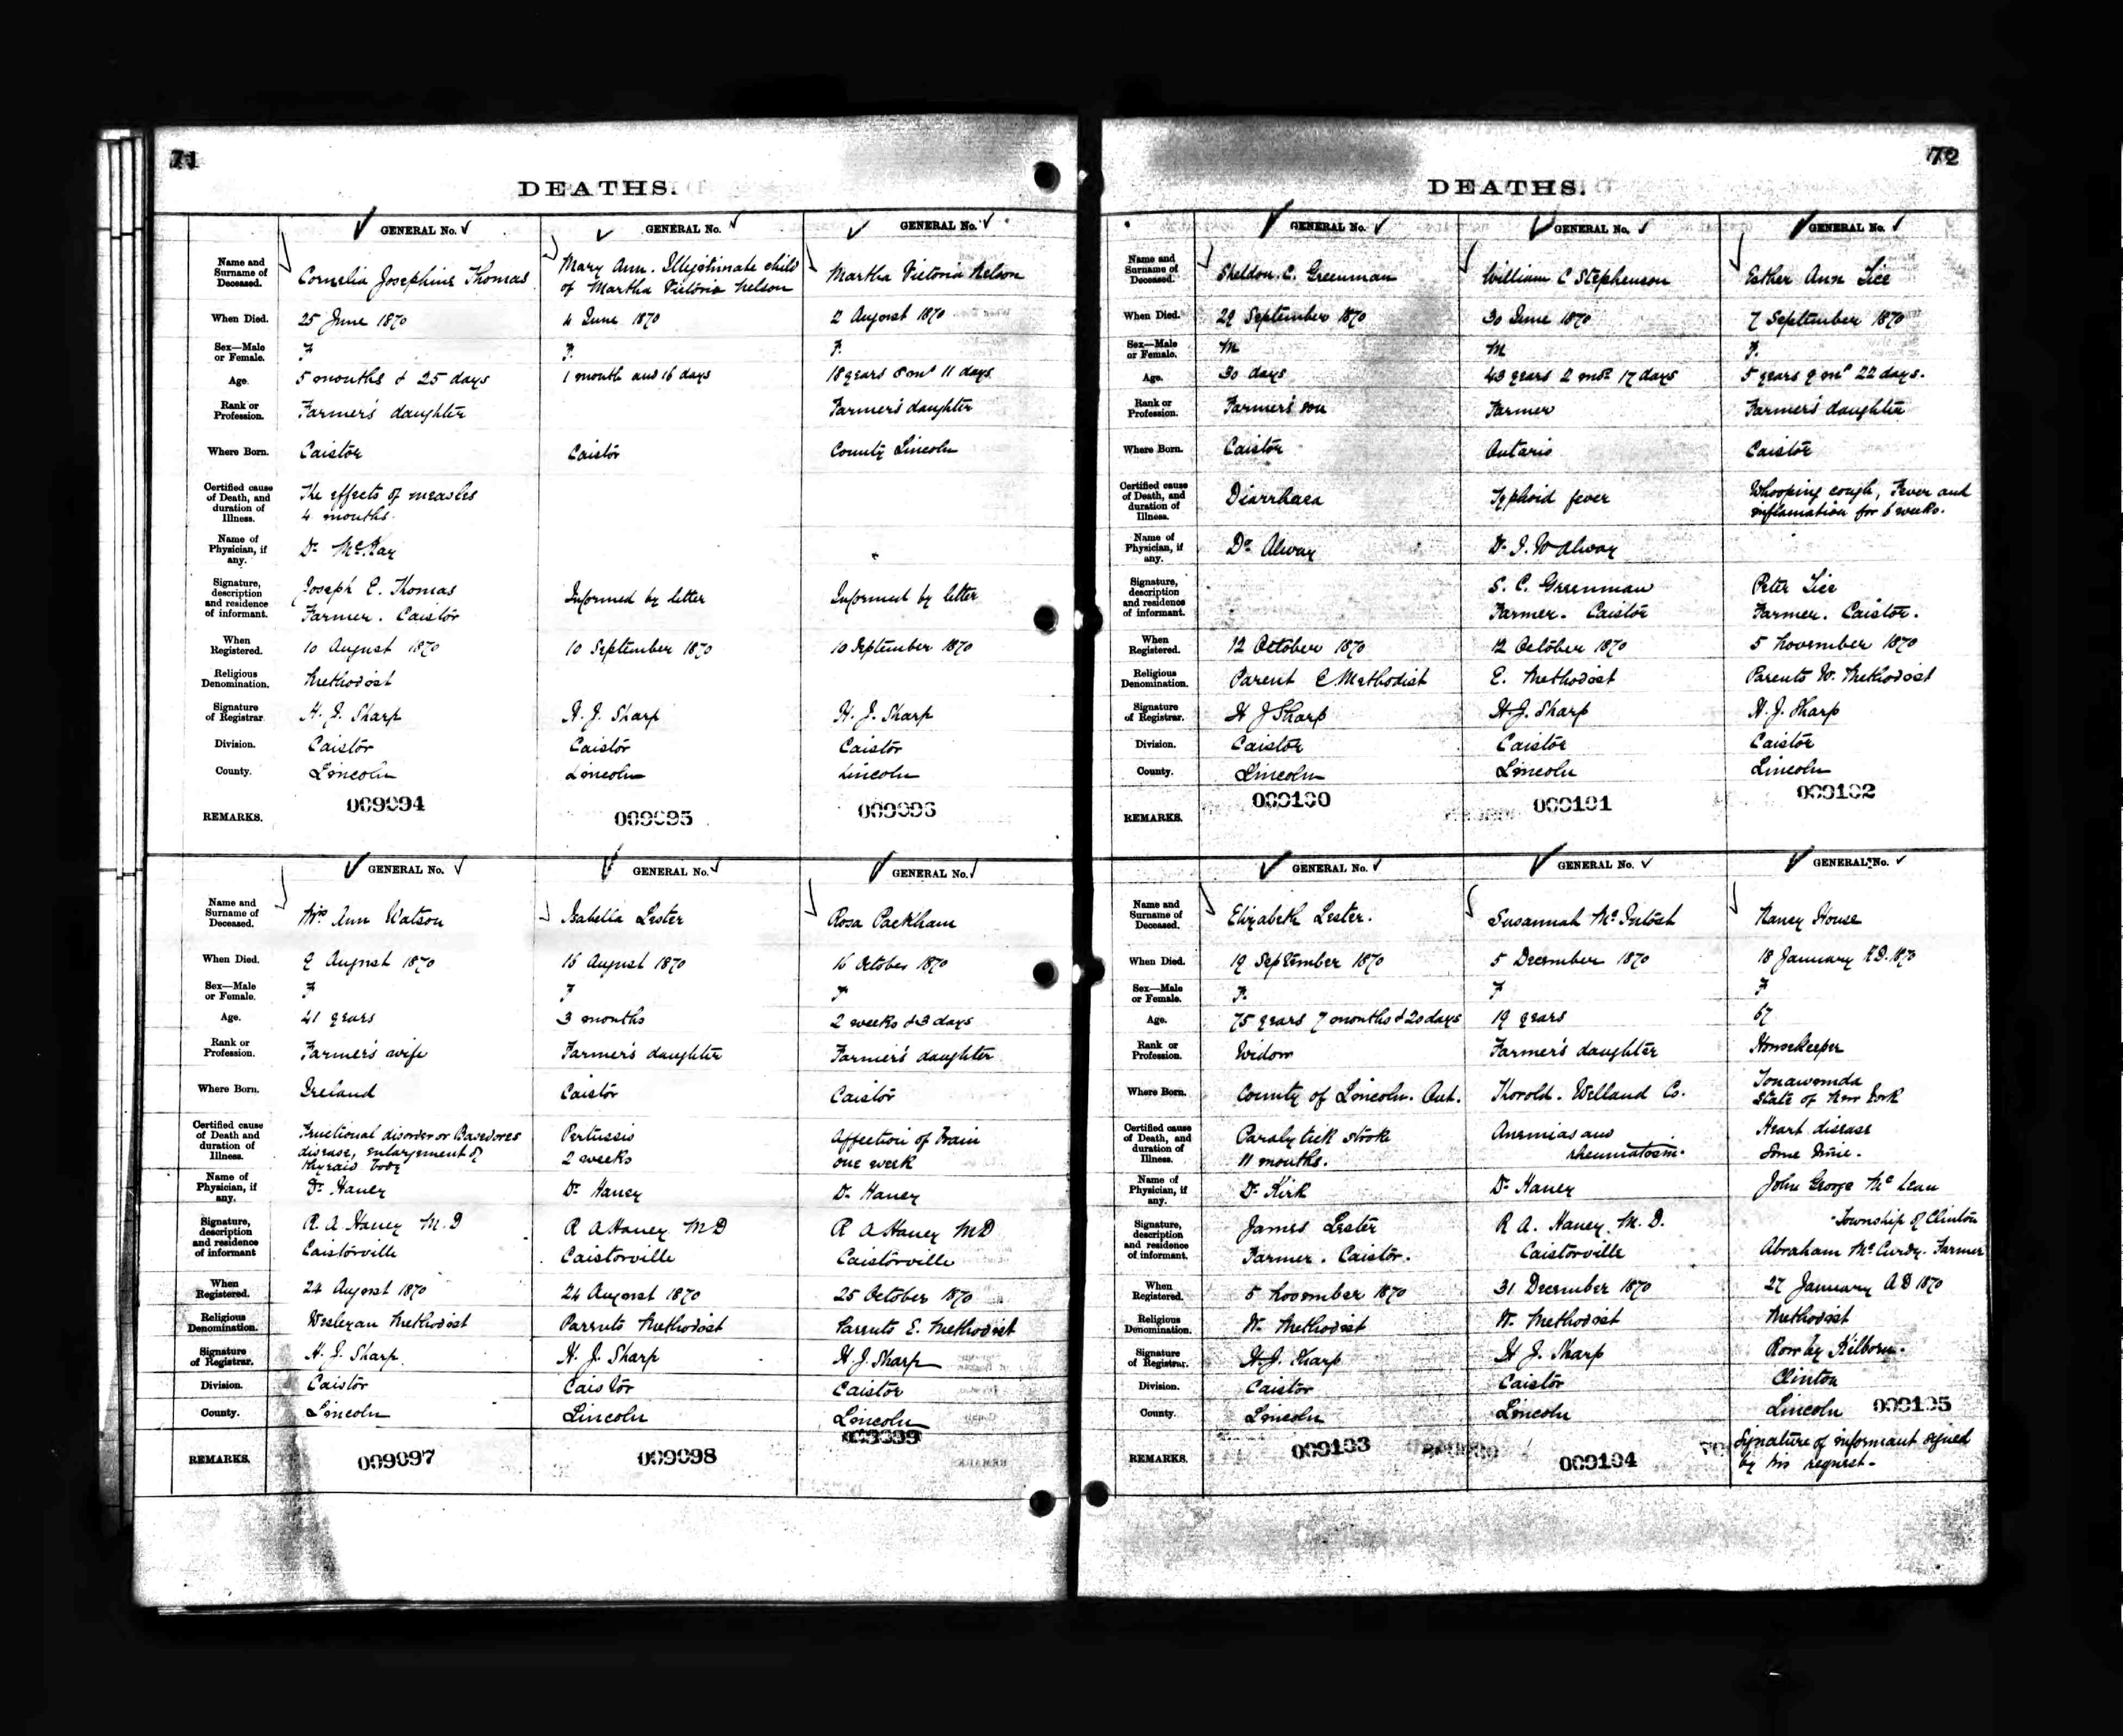 71
DEATHS.
GENERAL No. GENERAL No. GENERAL No.
Name and Surname of Deceased. Cornelia Josephine Thomas Mary Ann. Illegitimate child of Martha Victoria Nelson Martha Victoria Nelson
When Died. 25 June 1870 4 June 1870 2 August 1870
Sex—Male or Female. F F. F.
Age. 5 months & 25 days 1 month and 16 days 18 years 8 ms 11 days
Rank or Profession. Farmer's daughter Farmer's daughter
Where Born. Caistor Caistor County Lincoln
Certified cause of Death, and duration of Illness. The effects of measles 4 months.
Name of Physician, if any. Dr McKay
Signature, description and residence of informant. Joseph E. Thomas Farmer. Caistor Informed by letter Informed by letter
When Registered. 10 August 1870 10 September 1870 10 September 1870
Religious Denomination. Methodist
Signature of Registrar H. J. Sharp H. J. Sharp H. J. Sharp
Division. Caistor Caistor Caistor
County. Lincoln Lincoln Lincoln
REMARKS. 009094 009095 009096
GENERAL No. GENERAL No. GENERAL No.
Name and Surname of Deceased. Mrs Ann Watson Isabella Lester Rosa Packham
When Died. 9 August 1870 15 August 1870 16 October 1870
Sex—Male or Female. F F F
Age. 41 years 3 months 2 weeks & 3 days
Rank or Profession. Farmer's wife Farmer's daughter Farmer's daughter
Where Born. Ireland Caistor Caistor
Certified cause of Death and duration of Illness. Functional disorder or Basedores disease, enlargement of thyraid body Pertussis 2 weeks Affection of brain one week
Name of Physician, if any. Dr Haney Dr Haney Dr Haney
Signature, description and residence of informant R. A. Haney M. D Caistorville R A Haney M D Caistorville R A Haney M D Caistorville
When Registered. 24 August 1870 24 August 1870 25 October 1870
Religious Denomination. Wesleyan Methodist Parents Methodist Parents E. Methodist
Signature of Registrar. H. J. Sharp. H. J. Sharp H J. Sharp
Division. Caistor Caistor Caistor
County. Lincoln Lincoln Lincoln
REMARKS. 009097 009098 009099
72
DEATHS.
GENERAL No. GENERAL No. GENERAL No.
Name and Surname of Deceased. Sheldon. C. Greenman William C Stephenson Esther Ann Lice
When Died. 29 September 1870 30 June 1870 7 September 1870
Sex—Male or Female. M M F.
Age. 30 days 43 years 2 mos 17 days 5 years 9 ms 22 days.
Rank or Profession. Farmer's son Farmer Farmer's daughter
Where Born. Caistor Ontario Caistor
Certified cause of Death, and duration of Illness. Diarrhaea Typhoid fever Whooping cough, Fever and inflamation for 6 weeks.
Name of Physician, if any. Dr Alway Dr J. W Alway
Signature, description and residence of informant. S. C. Greenman Farmer. Caistor Peter Lice Farmer. Caistor.
When Registered. 12 October 1870 12 October 1870 5 November 1870
Religious Denomination. Parent E Methodist E. Methodist Parents W. Methodist
Signature of Registrar. H J Sharp H. J. Sharp H. J. Sharp
Division. Caistor Caistor Caistor
County. Lincoln Lincoln Lincoln
REMARKS. 009100 009101 009102
GENERAL No. GENERAL No. GENERAL No.
Name and Surname of Deceased. Elizabeth Lester. Susannah McIntosh Nancy House
When Died. 19 September 1870 5 December 1870 18 January A D. 1870
Sex—Male or Female. F. F F
Age. 75 years 7 months & 20 days 19 years 67
Rank or Profession. Widow Farmer's daughter Housekeeper
Where Born. County of Lincoln. Ont. Thorold. Welland Co. Tonawanda State of New York
Certified cause of Death, and duration of Illness. Paralytick stroke 11 months. Anemias and rheumatism. Heart disease Some time.
Name of Physician, if any. Dr Kirk Dr Haney John George McLean
Signature, description and residence of informant. James Lester Farmer. Caistor. R A. Haney. M. D. Caistorville Township of Clinton Abraham McCurdy. Farmer
When Registered. 5 November 1870 31 December 1870 27 January A D 1870
Religious Denomination. W. Methodist W. Methodist Methodist
Signature of Registrar. H. J. Sharp H J. Sharp Kilborn.
Division. Caistor Caistor Clinton
County. Lincoln Lincoln Lincoln 009105
REMARKS. 009103 009104 Signature of informant signed by his request.